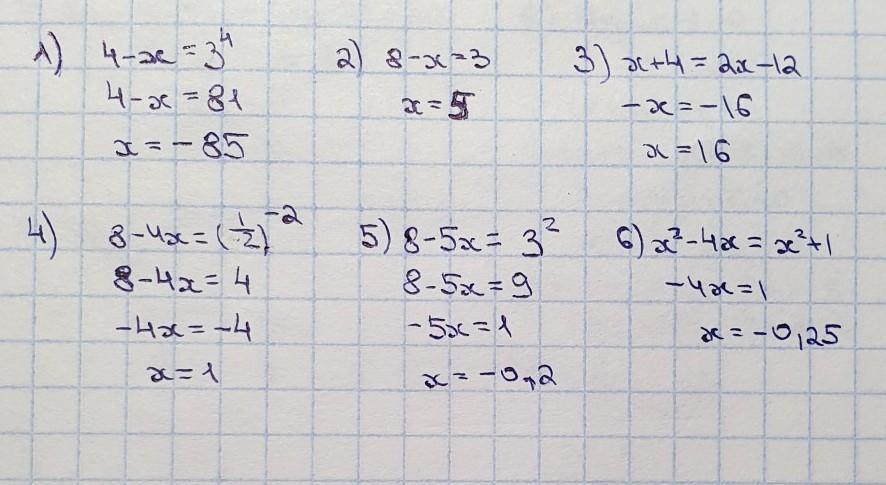 1) 4-x = 3⁴
4-x = 81
x = -85
2) 8-x=3
x=5
3) x+4 = 2x-12
-x = -16
x = 16
4) 8-4x = (1/2)⁻²
8-4x = 4
-4x = -4
x = 1
5) 8-5x = 3²
8-5x = 9
-5x = 1
x = -0,2
6) x²-4x = x²+1
-4x = 1
x = -0,25